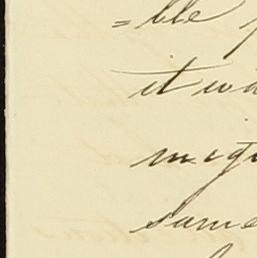 =ble
it wa
migh
same